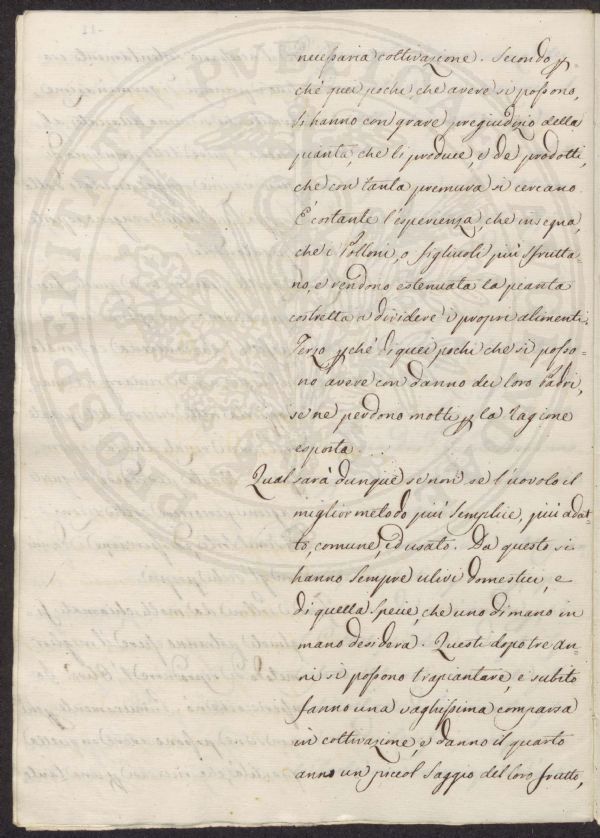 necessaria coltivazione. Secondo p
ché quei pochi che avere si possono,
si hanno con grave pregiudizio della
pianta, che li produce, e de prodotti,
che con tanta premura si cercano.
È costante l'esperienza, che insegna,
che i Polloni, o figliuoli più sfrutta-
no, e rendono estenuata la pianta
costretta a dividere i propri alimenti.
Terzo pché di quei pochi che si posso-
no avere con danno dei loro Padri,
se ne perdono molti p la ragione
esposta...
Qual sarà dunque se non se l'uovolo il
miglior metodo più semplice, più adat-
to, comune, ed usato. Da questo si
hanno sempre ulivi domestici, e
di quella specie, che uno di mano in
mano desidera. Questi dopo tre an-
ni si possono trapiantare, e subito
fanno una vaghissima comparsa
in coltivazione, e danno il quarto
anno un piccol saggio del loro frutto,
PROSPERITATI PUBLICAE